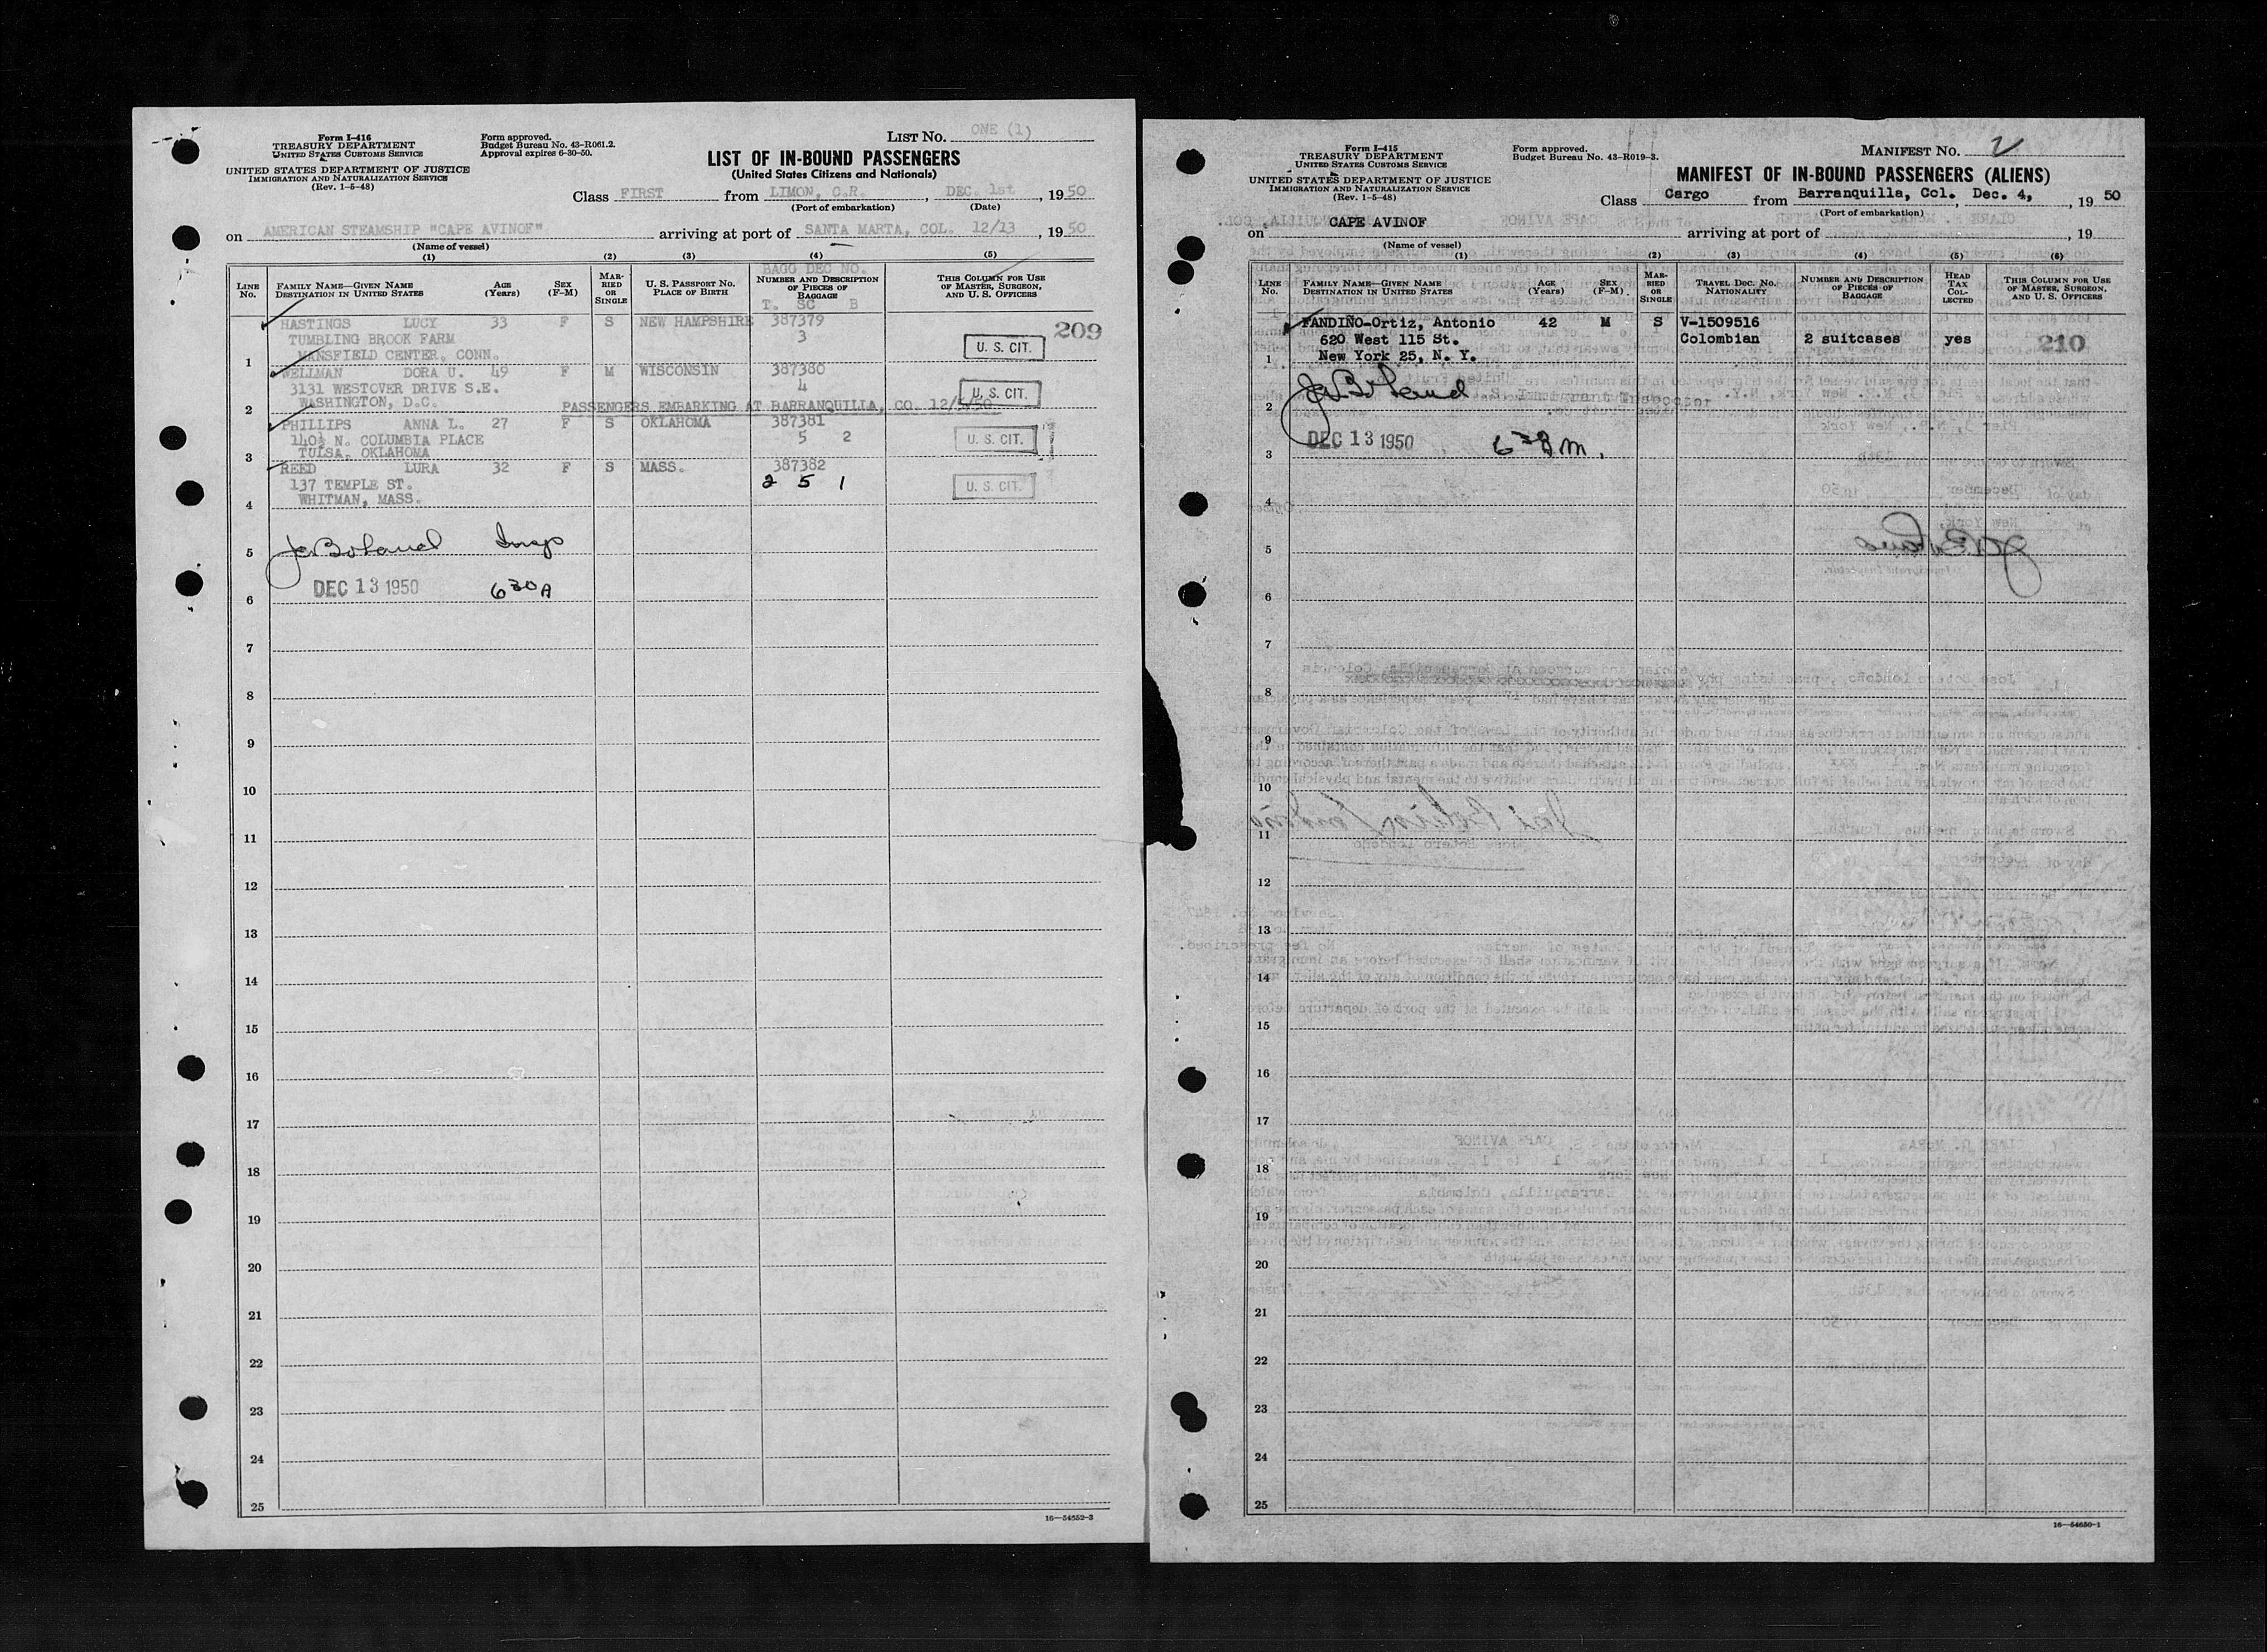 Form I-416
TREASURY DEPARTMENT
UNITED STATES CUSTOMS SERVICE
UNITED STATES DEPARTMENT OF JUSTICE
IMMIGRATION AND NATURALIZATION SERVICE
(Rev. 1-5-48)
Form approved.
Budget Bureau No. 43-R061.2.
Approval expires 6-30-50.
LIST No. ONE (1)
LIST OF IN-BOUND PASSENGERS
(United States Citizens and Nationals)
Class FIRST from LIMON, C.R. , DEC. 1st , 1950
(Port of embarkation) (Date)
on AMERICAN STEAMSHIP "CAPE AVINOF" arriving at port of SANTA MARTA, COL. 12/13 , 1950
(Name of vessel)
(1) (2) (3) (4) (5)
BAGG DEC NO.
LINE No. FAMILY NAME—GIVEN NAME DESTINATION IN UNITED STATES AGE (Years) SEX (F-M) MARRIED OR SINGLE U. S. PASSPORT No. PLACE OF BIRTH NUMBER AND DESCRIPTION OF PIECES OF BAGGAGE THIS COLUMN FOR USE OF MASTER, SURGEON, AND U. S. OFFICERS
T. SC B
HASTINGS LUCY 33 F S NEW HAMPSHIRE 387379 209
TUMBLING BROOK FARM 3
1 MANSFIELD CENTER, CONN. U. S. CIT.
WELLMAN DORA U. 49 F M WISCONSIN 387380
3131 WESTOVER DRIVE S.E. 4 U. S. CIT.
2 WASHINGTON, D.C. PASSENGERS EMBARKING AT BARRANQUILLA, CO. 12/4/50
PHILLIPS ANNA L. 27 F S OKLAHOMA 387381
140½ N. COLUMBIA PLACE 5 2 U. S. CIT.
3 TULSA. OKLAHOMA
REED LURA 32 F S MASS. 387382
137 TEMPLE ST. 2 5 1 U. S. CIT.
4 WHITMAN, MASS.
5 JaBoland Insp
DEC 13 1950 630A
6
7
8
9
10
11
12
13
14
15
16
17
18
19
20
21
22
23
24
25
16—54652-3
Form I-415
TREASURY DEPARTMENT
UNITED STATES CUSTOMS SERVICE
UNITED STATES DEPARTMENT OF JUSTICE
IMMIGRATION AND NATURALIZATION SERVICE
(Rev. 1-5-48)
Form approved.
Budget Bureau No. 43-R019-3.
MANIFEST No. 2
MANIFEST OF IN-BOUND PASSENGERS (ALIENS)
Class Cargo from Barranquilla, Col. Dec. 4, , 19 50
(Port of embarkation)
on CAPE AVINOF arriving at port of , 19
(Name of vessel)
(1) (2) (3) (4) (5) (6)
LINE No. FAMILY NAME—GIVEN NAME DESTINATION IN UNITED STATES AGE (Years) SEX (F-M) MARRIED OR SINGLE TRAVEL DOC. No. NATIONALITY NUMBER AND DESCRIPTION OF PIECES OF BAGGAGE HEAD TAX COLLECTED THIS COLUMN FOR USE OF MASTER, SURGEON, AND U. S. OFFICERS
FANDIÑO-Ortiz, Antonio 42 M S V-1509516
620 West 115 St. Colombian 2 suitcases yes 210
1 New York 25, N. Y.
2 JaBoland
DEC 13 1950
3
4
5
6
7
8
9
10
11
12
13
14
15
16
17
18
19
20
21
22
23
24
25
16—54650-1